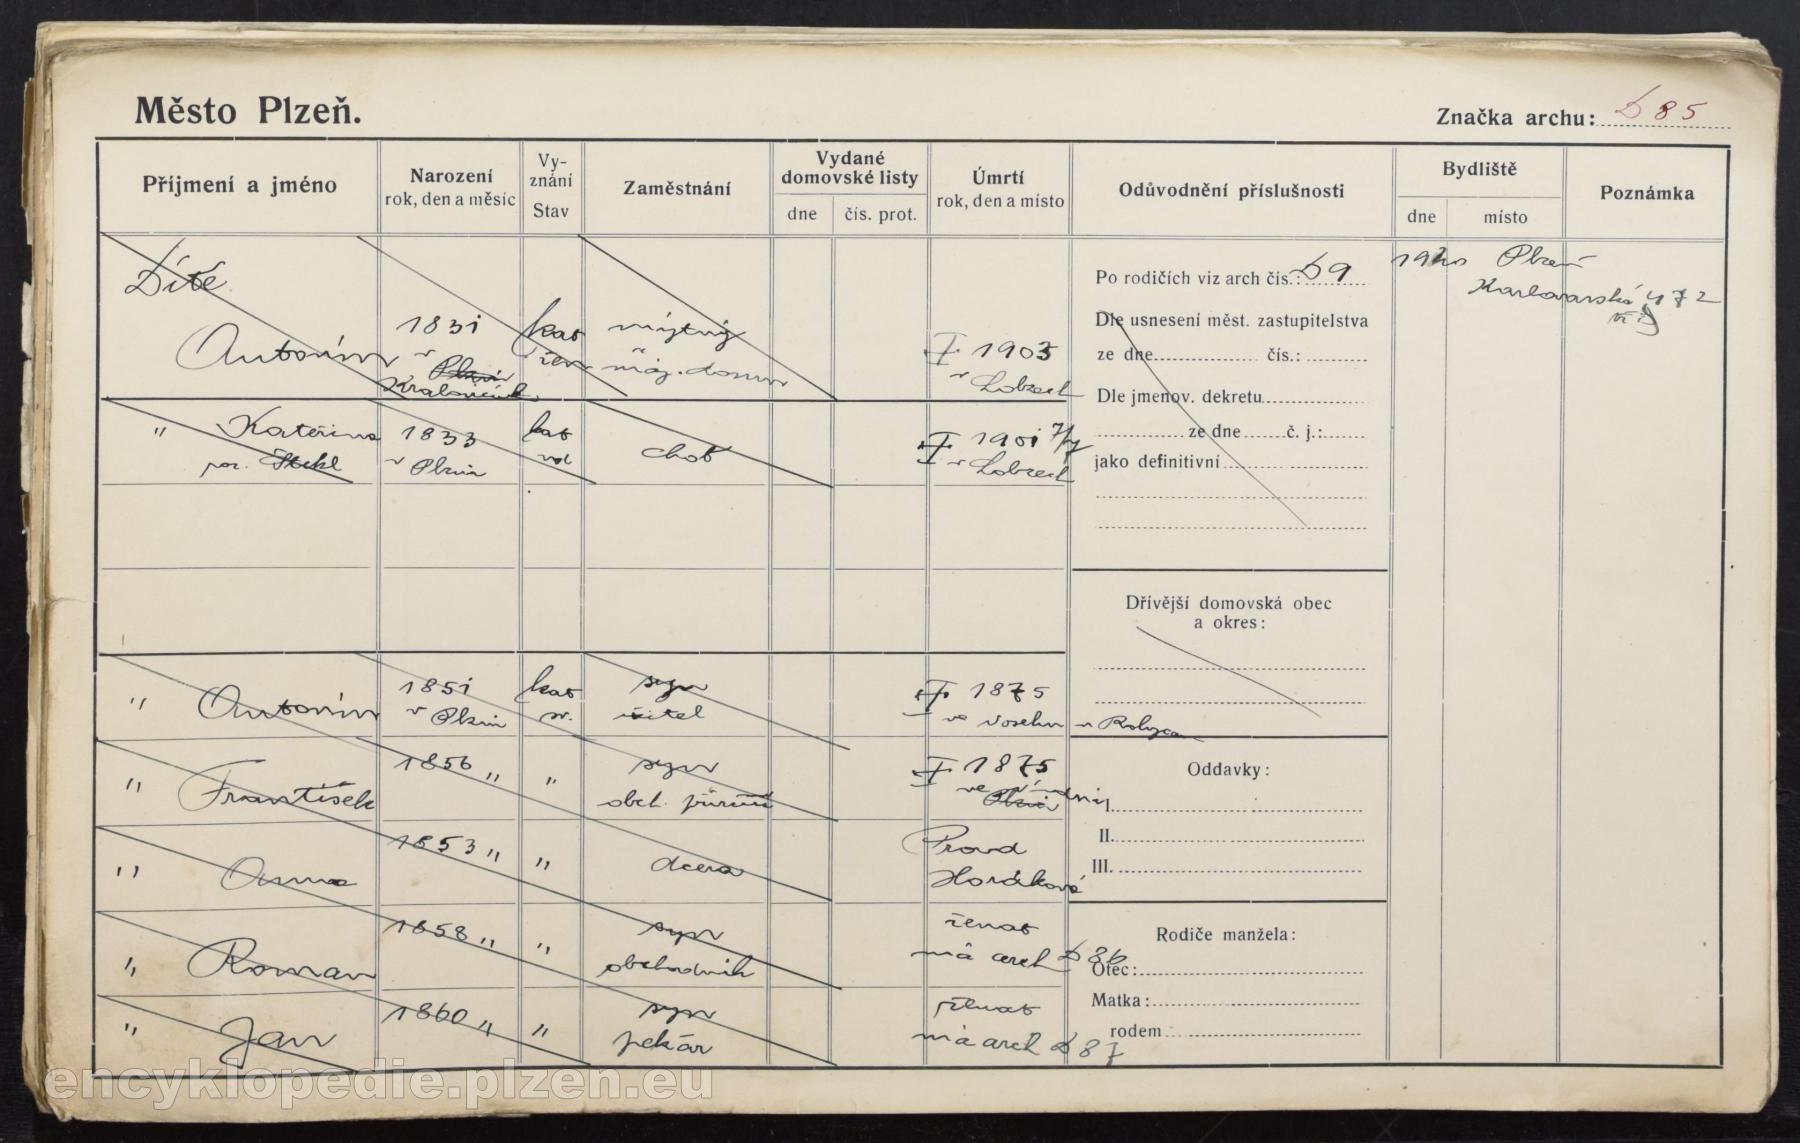 Město Plzeň.
Značka archu: D 85
Příjmení a jméno
Narození
rok, den a měsíc
Vy-
znání
Stav
Zaměstnání
Vydané
domovské listy
dne
čís. prot.
Úmrtí
rok, den a místo
Odůvodnění příslušnosti
Bydliště
dne
místo
Poznámka
Dítě
Antonín 1831 kat mýtný † 1903
v Plzni žen maj. domu v Lobzech
" Kateřina 1833 kat choť † 1901 7/7
roz. v Plzni vd v Lobzech
" Antonín 1851 kat syn † 1875
v Plzni sv. učitel ve u Rokycan
" František 1856 " " syn † 1875
obch. Plzni
" Anna 1853 " " dcera Provd
Horáková
" Roman 1858 " " syn ženat
obchodník má arch D 86
" Jan 1860 " " syn ženat
pekár má arch D 87
Po rodičích viz arch čís.: D 9
Dle usnesení měst. zastupitelstva
ze dne čís.:
Dle jmenov. dekretu
ze dne č. j.:
jako definitivní
Dřívější domovská obec
a okres:
Oddavky:
I.
II.
III.
Rodiče manžela:
Otec:
Matka:
rodem
Plzeň
Karlovarská 472
encyklopedie.plzen.eu